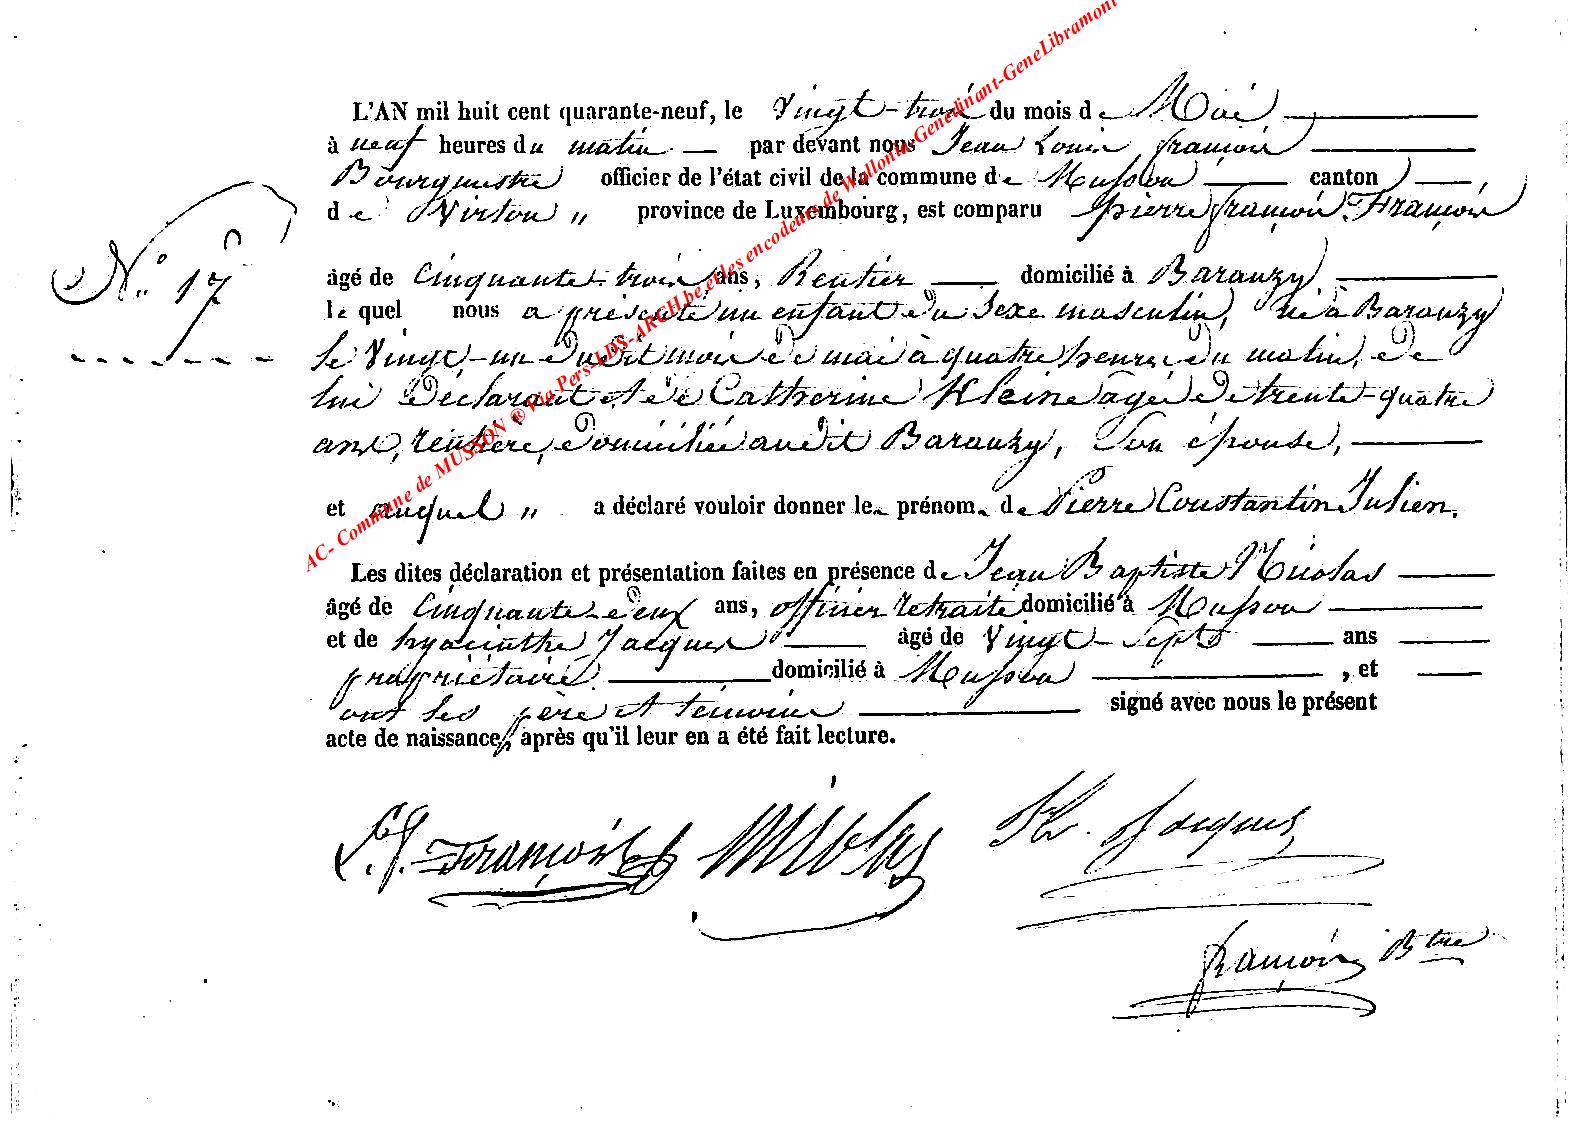 L'AN mil huit cent quarante-neuf, le Vingt-trois du mois de Mai
à neuf heures du matin par devant nous Jean Louis françois
Bourgmestre officier de l'état civil de la commune de Musson canton
de Virton " province de Luxembourg, est comparu pierre françois François
N° 17
âgé de Cinquante-trois ans, Rentier domicilié à Baranzy
le quel nous a présenté un enfant du sexe masculin, né à Baranzy
le Vingt-un dudit mois de mai à quatre heures du matin, de
lui Déclarant et de Catherine Kleine agée de trente-quatre
ans, rentière, domiciliée audit Baranzy, Son épouse,
et auquel " a déclaré vouloir donner le prénom de Pierre Constantin Julien.
AC- Commune de MUSSON ® Via Pers-LDS-ARCH.be et les encodeurs de Wallonia-Genedinant-GeneLibramont
Les dites déclaration et présentation faites en présence de Jean Baptiste Nicolas
âgé de Cinquante-deux ans, officier retraité domicilié à Musson
et de hyacinthe Jacques âgé de Vingt-Sept ans
propriétaire domicilié à Musson , et
ont les père et témoins signé avec nous le présent
acte de naissance, après qu'il leur en a été fait lecture.
François Nicolas Jacques
françois Btre